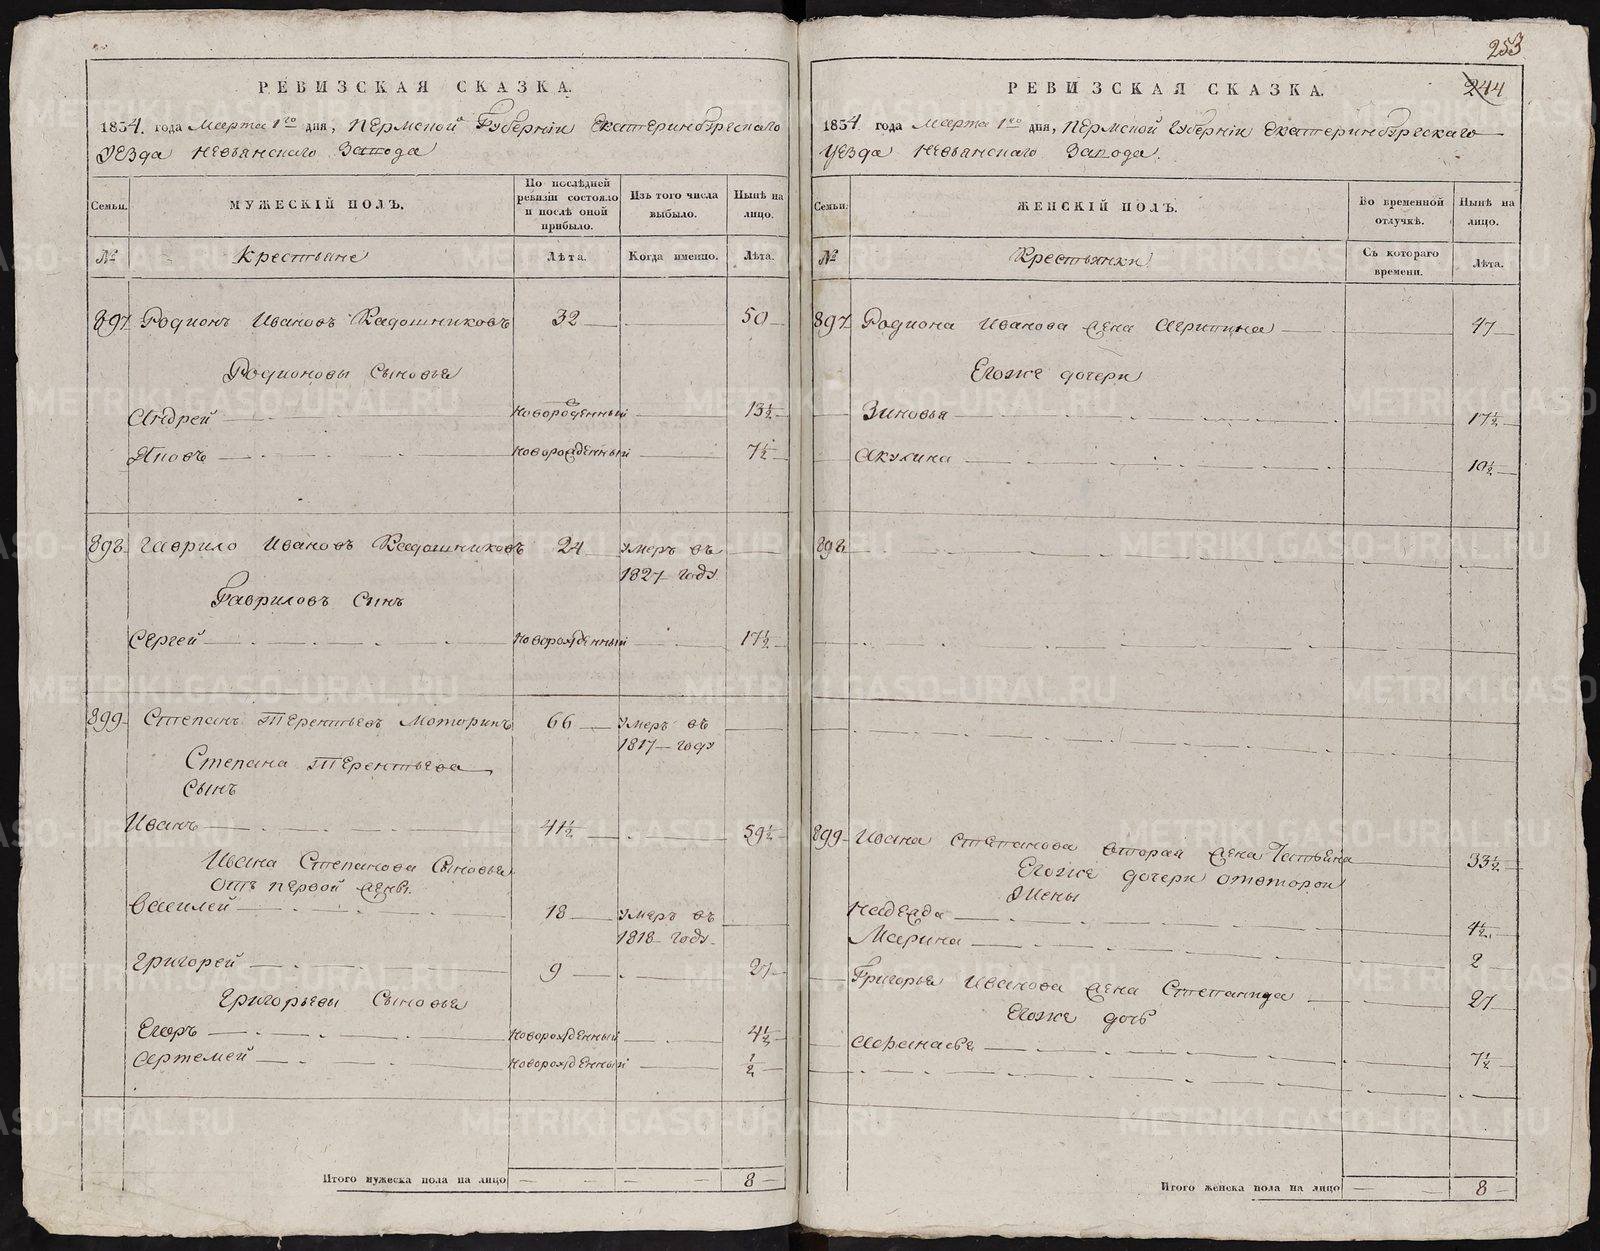 253
РЕВИЗСКАЯ СКАЗКА.
1834. года Марта 1го дня, Пермской Губернiи Екатеринбургскаго
Уезда Невьянскаго Завода
Семьи.
МУЖЕСКIЙ ПОЛЪ.
По послѣдней ревизiи состояло и послѣ оной прибыло.
Изъ того числа выбыло.
Нынѣ на лицо.
№
Крестьяне
Лѣта.
Когда именно.
Лѣта.
897 Родионъ Ивановъ Кадошниковъ 32 50
Родионовы Сыновья
Андрей новорожденный 13½
новорожденный 7½
898. Гаврило Ивановъ Кадошниковъ 24 умеръ въ
1827 году
Гавриловъ Сынъ
Сергей новорожденный 17½
899 Степанъ Терентьевъ Моторинъ 66 умеръ въ
1817 году
Степана Терентьева
сынъ
Иванъ 41½ 59½
Ивана Степанова Сыновья
отъ первой жены
Василей 18 умеръ въ
1818 году.
Григорей 9 27
Григорьевы Сыновья
Егоръ новорожденный 4½
Артемей новорожденный ½
Итого мужеска пола на лицо 8
РЕВИЗСКАЯ СКАЗКА.
244
1834 года Марта 1го дня, Пермской Губернiи Екатеринбургскаго
Уезда Невьянскаго Завода.
Семьи.
ЖЕНСКIЙ ПОЛЪ.
Во временной отлучкѣ.
Нынѣ на лицо.
№
Крестьянки
Съ котораго времени.
Лѣта.
897 Родиона Иванова жена Агрипина 47
Егоже дочери
Зиновья 17½
Акулина 10½
898
899 Ивана Степанова вторая жена Татьяна 33½
Егоже дочери отвторой
Жены
Надежда 4½
Марина 2
Григорья Иванова жена Степанида 27
Егоже дочь
Афанасья 7½
Итого женска пола на лицо 8
METRIKI.GASO-URAL.RU